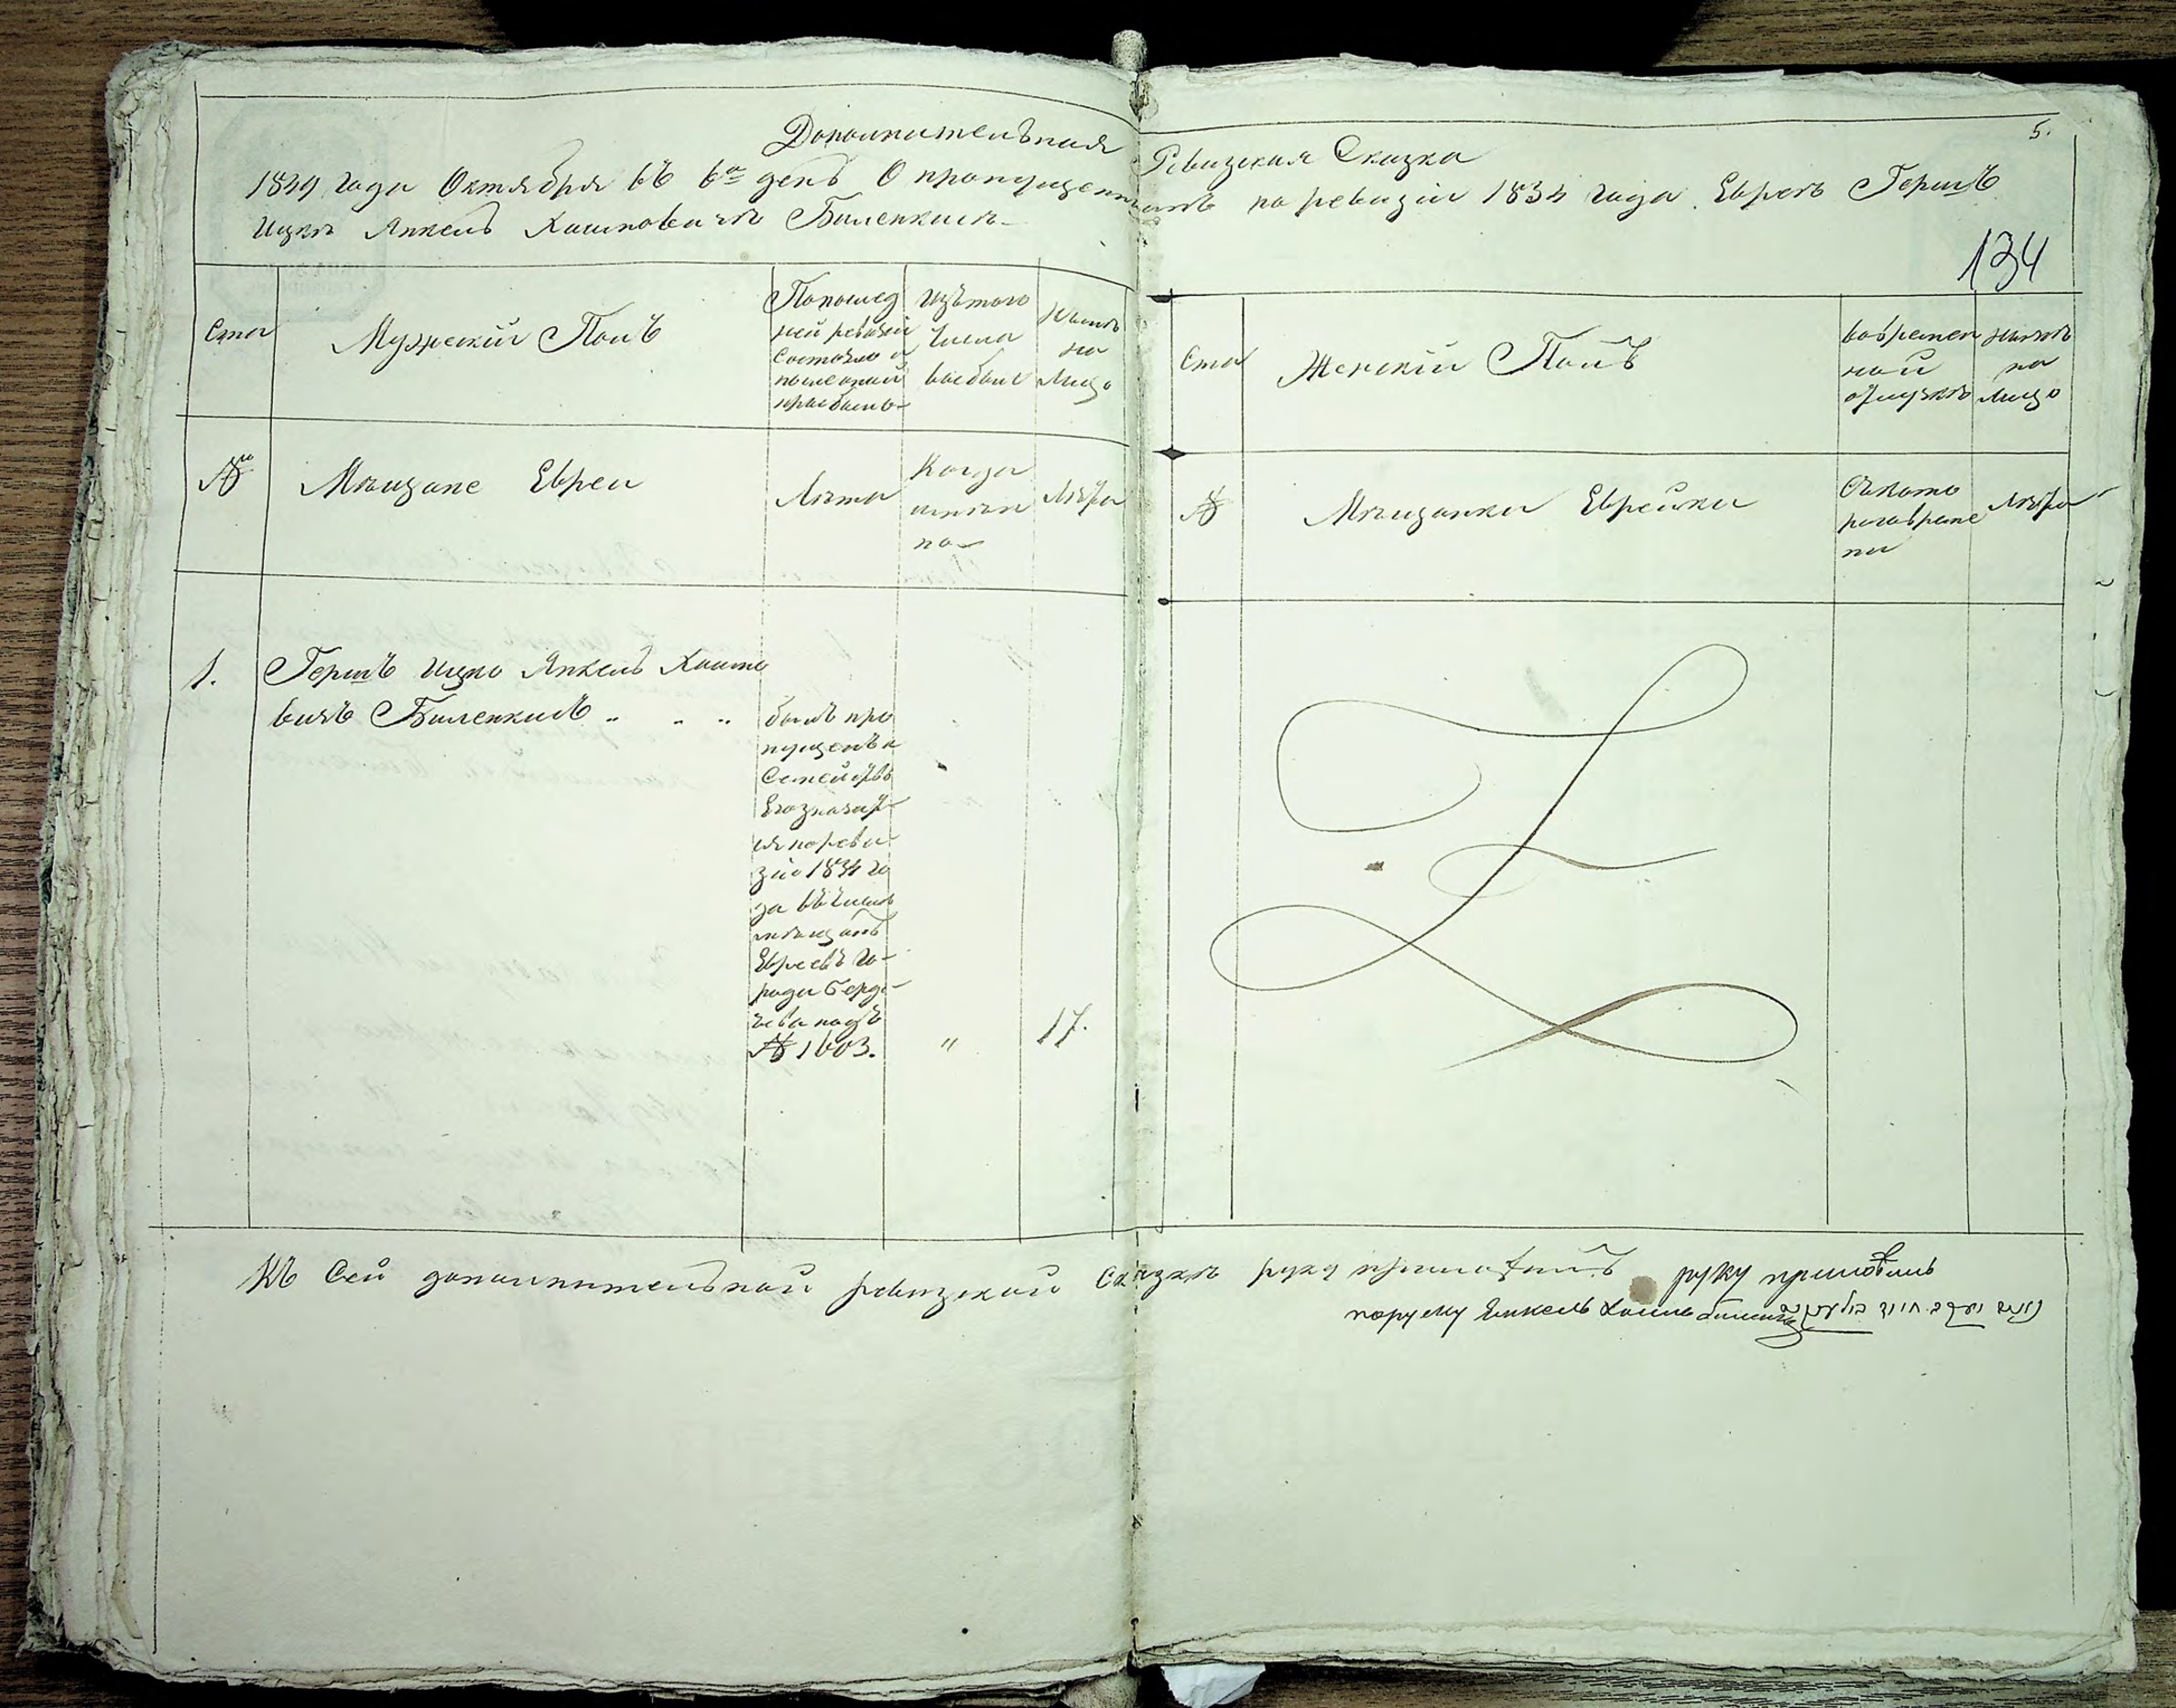 5.
Дополнительная Ревизская Сказка
1849 года Октября въ 6й день О пропущенномъ по ревизіи 1834 года Евреѣ Гершъ
Ицкѣ Янкель Хаимовичѣ Биленкисѣ
134
Мужескій Полъ
По послед
ней ревизіи
состояло и
после оной
прибыло
Изъ того
числа
выбыло
Нынѣ
на
лицо
Женскій Полъ
во времен
ной
отлучкѣ
нынѣ
на
лицо
№
Мѣщане Евреи
Лѣта
Когда
имянно
Лѣта
№
Мѣщанки Еврейки
Съ кото
раго време
ни
Лѣта
1.
Гершъ Ицко Янкель Хаимо
вичъ Биленкисъ " " "
былъ про
пущенъ а
Семейство
Его значит
ся по реви
зіи 1834 го
да въ числѣ
мѣщанъ
Евреевъ го
рода Берди
чева подъ
№ 1603.
"
17.
Къ сей дополнительной ревизской Сказкѣ руку приложилъ
руку приложилъ